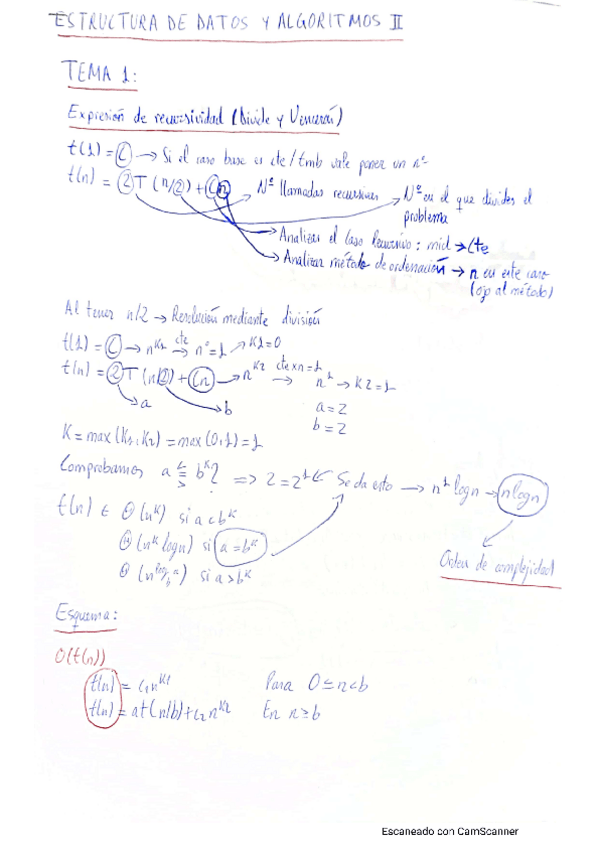 ESTRUCTURA DE DATOS Y ALGORITMOS II
TEMA 1:
Expresión de recursividad (Divide y Vencerás)
t(1) = C → Si el caso base es cte/tmb vale poner un nº
t(n) = 2T(n/2) + Cn
Nº llamadas recursivas
Nº en el que divides el problema
Analizar el Caso Recursivo: mid → Cte
Analizar método de ordenación → n en este caso
(ojo al método)
Al tener n/2 → Resolución mediante división
t(1) = C → n^K1 cte → nº = 1 → K1=0
t(n) = 2T(n/2) + Cn → n^K2 cte x n = 1 → n^1 → K2 = 1
a b
a = 2
b = 2
K = max(K1, K2) = max(0,1) = 1
Comprobamos a < = > b^K? => 2 = 2^1 Se da esto → n^1 logn → nlogn
t(n) ∈ Θ(n^K) si a<b^K
Θ(n^K logn) si a=b^K
Θ(n^log_b a) si a>b^K
Orden de complejidad
Esquema:
O(t(n))
t(n) = c1n^K1 Para 0≤n<b
t(n) = at(n/b)+c2n^K2 En n≥b
Escaneado con CamScanner